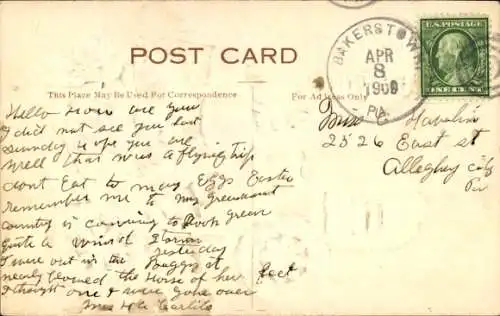 POST CARD
This Place May Be Used For Correspondence
For Address Only
BAKERSTOWN
APR
8
1909
PA.
U.S. POSTAGE
ONE CENT
Hello How are you
I did not see you last
Sunday hope you are
well that was a flying trip
dont Eat to many Eggs Easter
remember me to
country is coming to look green
quite a wind storm
yesterday
I were out in the Buggy it
nearly blowed the Horse of her feet
I thought one were gone over
Miss
2526 East st
Allegheny city
Pa